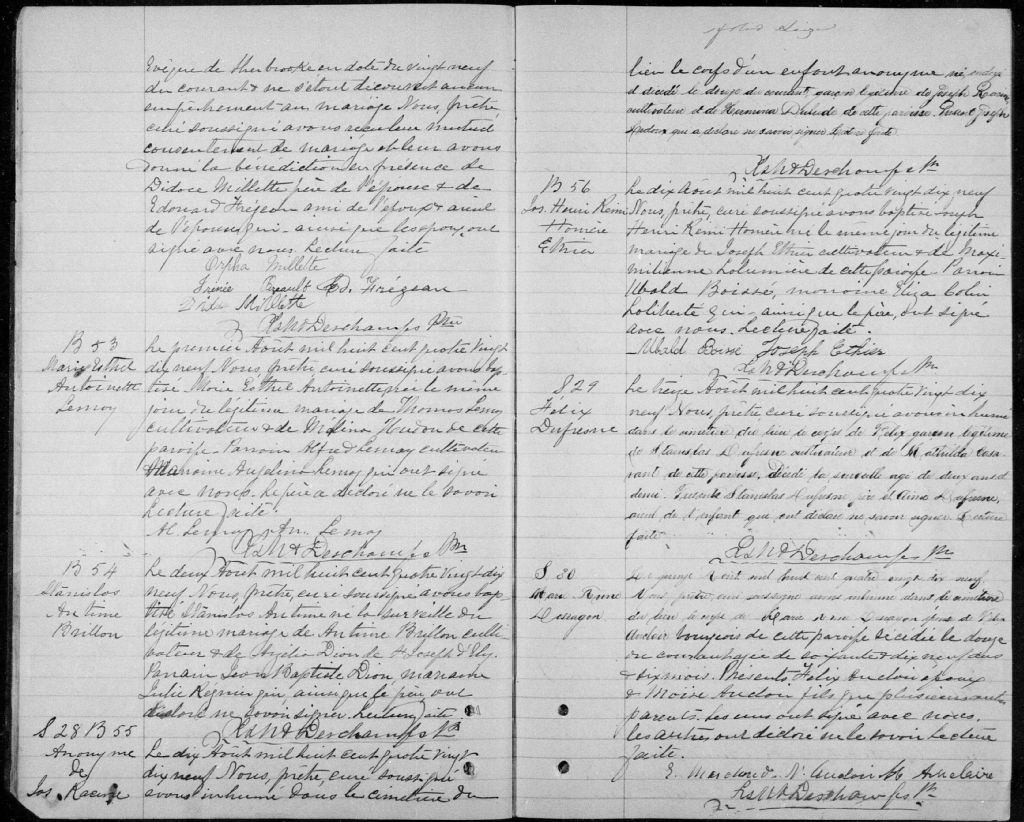 Evêque de Sherbrooke en date du vingt neuf
du courant & ne s'étant découvert aucun
empêchement au mariage Nous, prêtre,
curé soussigné avons reçu leur mutuel
consentement de mariage et leur avons
donné la bénédiction en présence de
Didace Millette père de l'épouse & de
Edouard Frégeau ami de l'époux & aieul
de l'épouse qui ainsi que les époux ont
signé avec nous. Lecture faite
Orpha Millette
Irénée Ed. Frégeau
Millette
Deschamps Ptre
B 53
Marie Esthel
Antoinette
Lemay
Le premier Août mil huit cent quatre vingt
dix neuf Nous, prêtre, curé soussigné avons bap
tisé Marie Esthel Antoinette, née le même
jour du légitime mariage de Thomas Lemay
cultivateur & de Malvina Hudon de cette
paroisse. Parrain Alfred Lemay cultivateur
Marraine Angelina Lemay qui ont signé
avec nous. Le père a déclaré ne le savoir
Lecture faite.
Al. Lemay An. Lemay
Deschamps Ptre
B 54
Stanislas
Antime
Brillon
Le deux Août mil huit cent quatre vingt dix
neuf Nous, prêtre, curé soussigné avons bap
tisé Stanislas Antime né la surveille du
légitime mariage de Antime Brillon culti
vateur & de Azélia Dion de St Joseph d'Ely.
Parrain Jean Baptiste Dion, marraine
Julie qui ainsi que le père ont
déclaré ne savoir signer. Lecture faite
Deschamps Ptre
S 28 B 55
Anonyme
de
Jos. Racine
Le dix Août mil huit cent quatre vingt
dix neuf Nous, prêtre, curé soussigné
avons inhumé dans le cimetière du
lieu le corps d'un enfant anonyme né, ondoyé
et décédé le de courant, garçon légitime de Joseph Racine
cultivateur et de de cette paroisse. Présent Joseph
qui a déclaré ne savoir signer Lecture faite.
Deschamps Ptre
B 56
Jos. Henri Rémi
Homère
Ethier
Le dix Août mil huit cent quatre vingt dix neuf
Nous, prêtre, curé soussigné avons baptisé Joseph
Henri Rémi Homère né le même jour du légitime
mariage de Joseph Ethier cultivateur & de Maxi
milienne de cette paroisse. Parrain
Ubald Boissé, marraine Eliza Colin
Laliberté qui ainsi que le père, ont signé
avec nous. Lecture faite.
Ubald Boisse Joseph Ethier
Deschamps Ptre
S 29
Félix
Dufresne
Le treize Août mil huit cent quatre vingt dix
neuf Nous, prêtre curé soussigné avons inhumé
dans le cimetière du lieu le corps de Félix garçon légitime
de Stanislas Dufresne cultivateur et de Mathilda Casa
vant de cette paroisse, décédé la surveille agé de deux ans et
demi. Présents Stanislas Dufresne père et Aimé Dufresne,
aieul de l'enfant qui ont déclaré ne savoir signer Lecture
faite
Deschamps Ptre
S. 30
Le quinze Août mil huit cent quatre vingt dix neuf
Nous, prêtre, curé soussigné avons inhumé dans le cimetière
du lieu le corps de épouse de
Audoin bourgeois de cette paroisse décédée le douze
du courant agée de soixante & dix neuf ans
& six mois. Présents Félix Audoin époux
& Moïse Audoin fils que plusieurs autres
parents. Les uns ont signé avec nous,
les autres ont déclaré ne le savoir. Lecture
faite.
E. Marchand N. Audoin
Deschamps Ptre